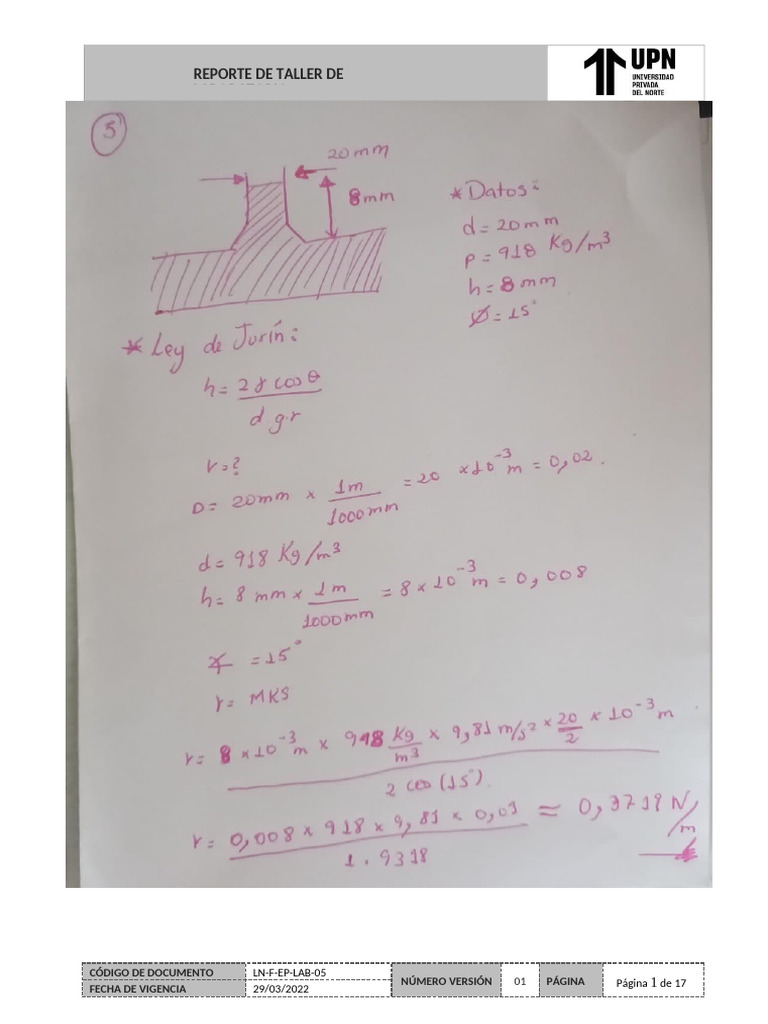 REPORTE DE TALLER DE
UPN
UNIVERSIDAD
PRIVADA
DEL NORTE
5
20mm
8mm
* Datos:
d = 20mm
ρ = 918 Kg/m³
h = 8 mm
Ø = 15°
* Ley de Jurín:
h = 2 γ cos θ
d g.r
r = ?
D = 20mm × 1m = 20 ×10⁻³ m = 0,02.
1000mm
d = 918 Kg/m³
h = 8 mm × 1m = 8 × 10⁻³ m = 0,008
1000mm
∡ = 15°
r = MKS
r = 8 ×10⁻³ m × 918 Kg/m³ × 9,81 m/s² × 20/2 × 10⁻³ m
2 cos (15°).
r = 0,008 × 918 × 9,81 × 0,01 ≈ 0,3719 N/m
1.9318
CÓDIGO DE DOCUMENTO LN-F-EP-LAB-05 NÚMERO VERSIÓN 01 PÁGINA Página 1 de 17
FECHA DE VIGENCIA 29/03/2022